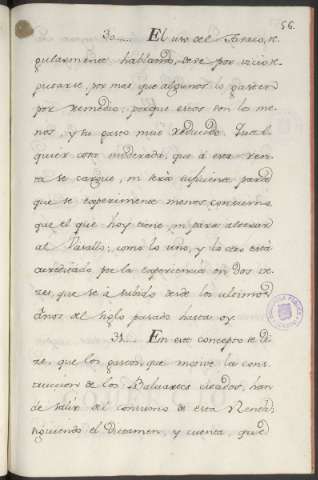 56.
30.... El uso del Tabaco, re-
gularmente hablando, deve por vicio re-
putarse, por mas que algunos lo gasten
por remedio; porque estos son los me-
nos, y su gasto muy reducido. Qual-
quier cota moderada, que á esta ren-
ta se cargue, ni será suficiente para
que se experimente menos consumo
que el que hoy tiene, ni para atrasar
al Vasallo; como lo uno, y lo otro está
acreditado por la experiencia en dos ve-
zes, que se á subido desde los ultimos
años del siglo pasado hasta oy.
31.... En este concepto se di-
ze, que los gastos, que motive la cons-
truccion de los Baluartes citados, han
de salir del consumo de esta Renta,
siguiendo el Dictamen, y cuenta, que